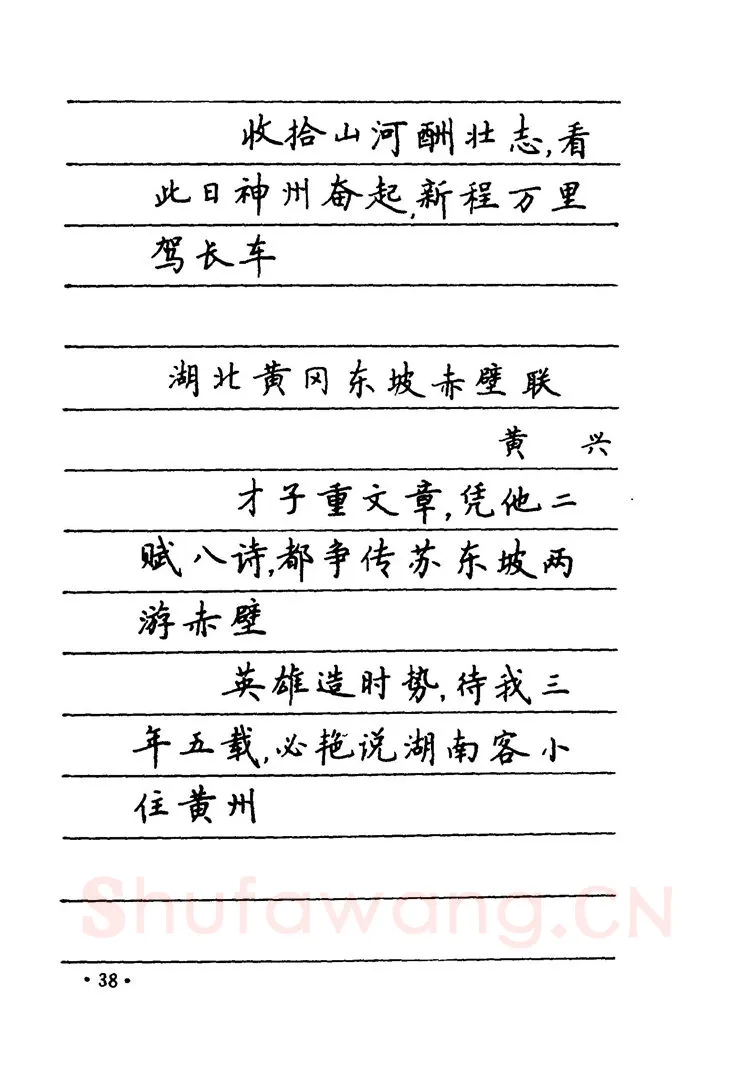 收拾山河酬壮志,看
此日神州奋起,新程万里
驾长车
湖北黄冈东坡赤壁联
黄 兴
才子重文章,凭他二
赋八诗,都争传苏东坡两
游赤壁
英雄造时势,待我三
年五载,必艳说湖南客小
住黄州
Shufawang.CN
·38·